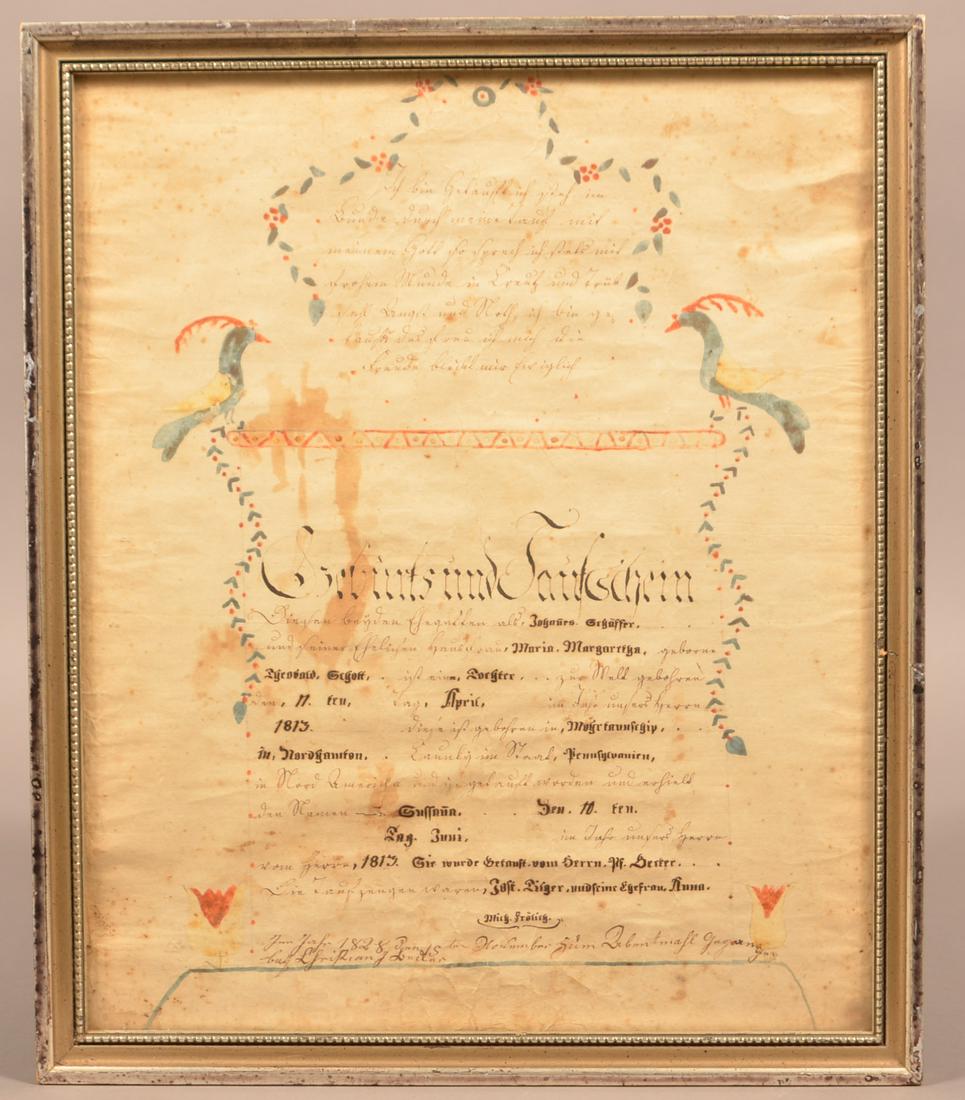 Ich bin Getauft ich steh im
Bunde, durch meine tauf mit
meinem Gott so sprech ich stets mit
frohem Munde in Creutz und Trüb
sahl Angst und Noth, ich bin ge
tauft des freu ich mich die
Freude bleibt mir Ewiglich
Geburts und Taufschein
Diesen beyden Ehegatten als, Johañes Schäffer.
und seiner Ehelichen Hausfrau, Maria Margaretha, geborne
Theobald, Schott, ist eine, Tochter, zur Welt gebohren
den, 11 ten, Tag, April, im Jahr unsers Herrn
1813. diese ist gebohren in,
in, Northamton, Caunty im Staat, Pennsylvanien,
in Nord America und ist getauft worden und erhielt
den Namen Sussaña. Den, 10. ten.
Tag. Juni, im Jahr unsers Herrn
vom Herrn, 1813. Sie wurde Getauft vom Herrn. Pf. Becker.
Die Taufzeugen waren, Jost. und seine Ehefrau, Anna.
Mich. Frölich.
Im Jahr 1828 den ten November zum Abentmahl Gegangen
bey Christian J Becker